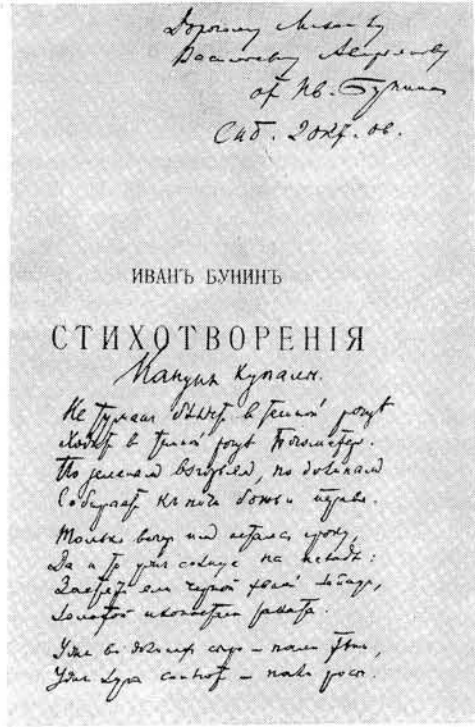 Дорогому Михаилу
Васильевичу Аверьянову
от Ив. Бунина
Спб. 2 окт. 06.
ИВАНЪ БУНИНЪ
СТИХОТВОРЕНІЯ
Канун Купалы.
Не туман бѣлѣет в темной рощѣ
Ходит в темной рощѣ Богоматерь.
По зеленым взгорьям, по долинам
Собирает къ ночи божьи травы.
Только вечер им остался сроку,
Да и то уж солнце на исходѣ:
Застят ели черной хвоей запад,
Золотой иконостас заката.
Уж в долинах сыро – пали тѣни,
Уж луга синѣют – пали росы.